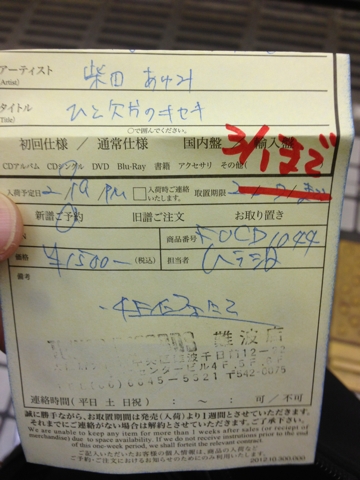 アーティスト
(Artist)
柴田 あゆみ
タイトル
(Title)
ひと欠片のキセキ
○で囲んでください。
初回仕様 / 通常仕様 国内盤 輸入盤
3/1まで
CDアルバム CDシングル DVD Blu-Ray 書籍 アクセサリ その他(
入荷予定日 2/19 PM □入荷時ご連絡いたします。 取置期限
新譜ご予約 旧譜ご注文 お取り置き
商品番号 FUCD1044
価格 ¥1500- (税込) 担当者
備考
難波店
連絡時間 (平日 土 日 祝) : ~ : 可 / 不可
誠に勝手ながら、お取置期間は発売(入荷)より1週間とさせていただきます。
それまでにご連絡がない場合は解約とさせていただきます。ご了承下さい。
We are unable to keep any item for more than 1 weeks after sales (or receipt of
merchandises) due to space availability. If we do not receive instructions prior to the end
of this one-week period, we shall forfeit the relevant contract.
ご記入いただいたお客様の個人情報は、商品の
ご予約・ご注文におけるお知らせのためにのみ利用いたします。
2012.10.300,000